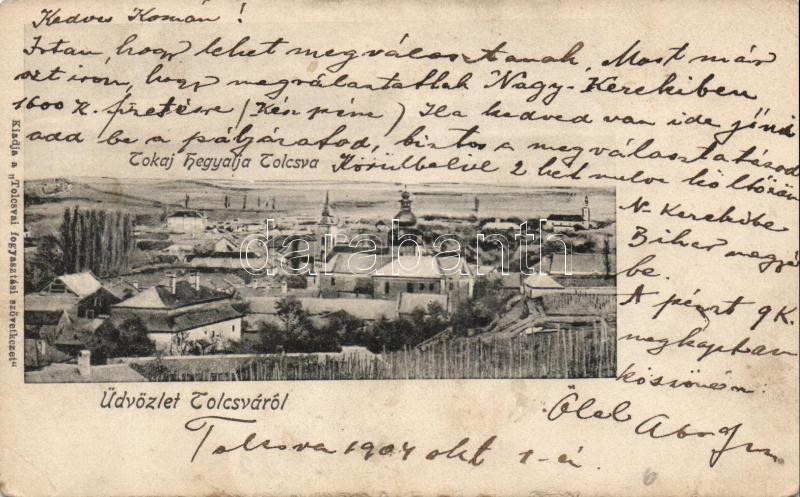 Kedves Komám!
Irtam, hogy lehet megválasztanak. Most már
azt irom, hogy megválasztattak Nagy-Kerekiben
1600 K. fizetésre (Kész pénz) Ha kedved van ide jönni
add be a pályázatod, biztos a megválasztatásod
Tokaj Hegyalja Tolcsva
Körülbelül 2 hét mulva költözöm
N-Kerekibe
Bihar megyé
be.
A pénzt 9K.
megkaptam
köszönöm.
Ölel
Kiadja a „Tolcsvai fogyasztási szövetkezet"
darabanth.com
Üdvözlet Tolcsváról
Tolcsva 1904 okt 1-én
6